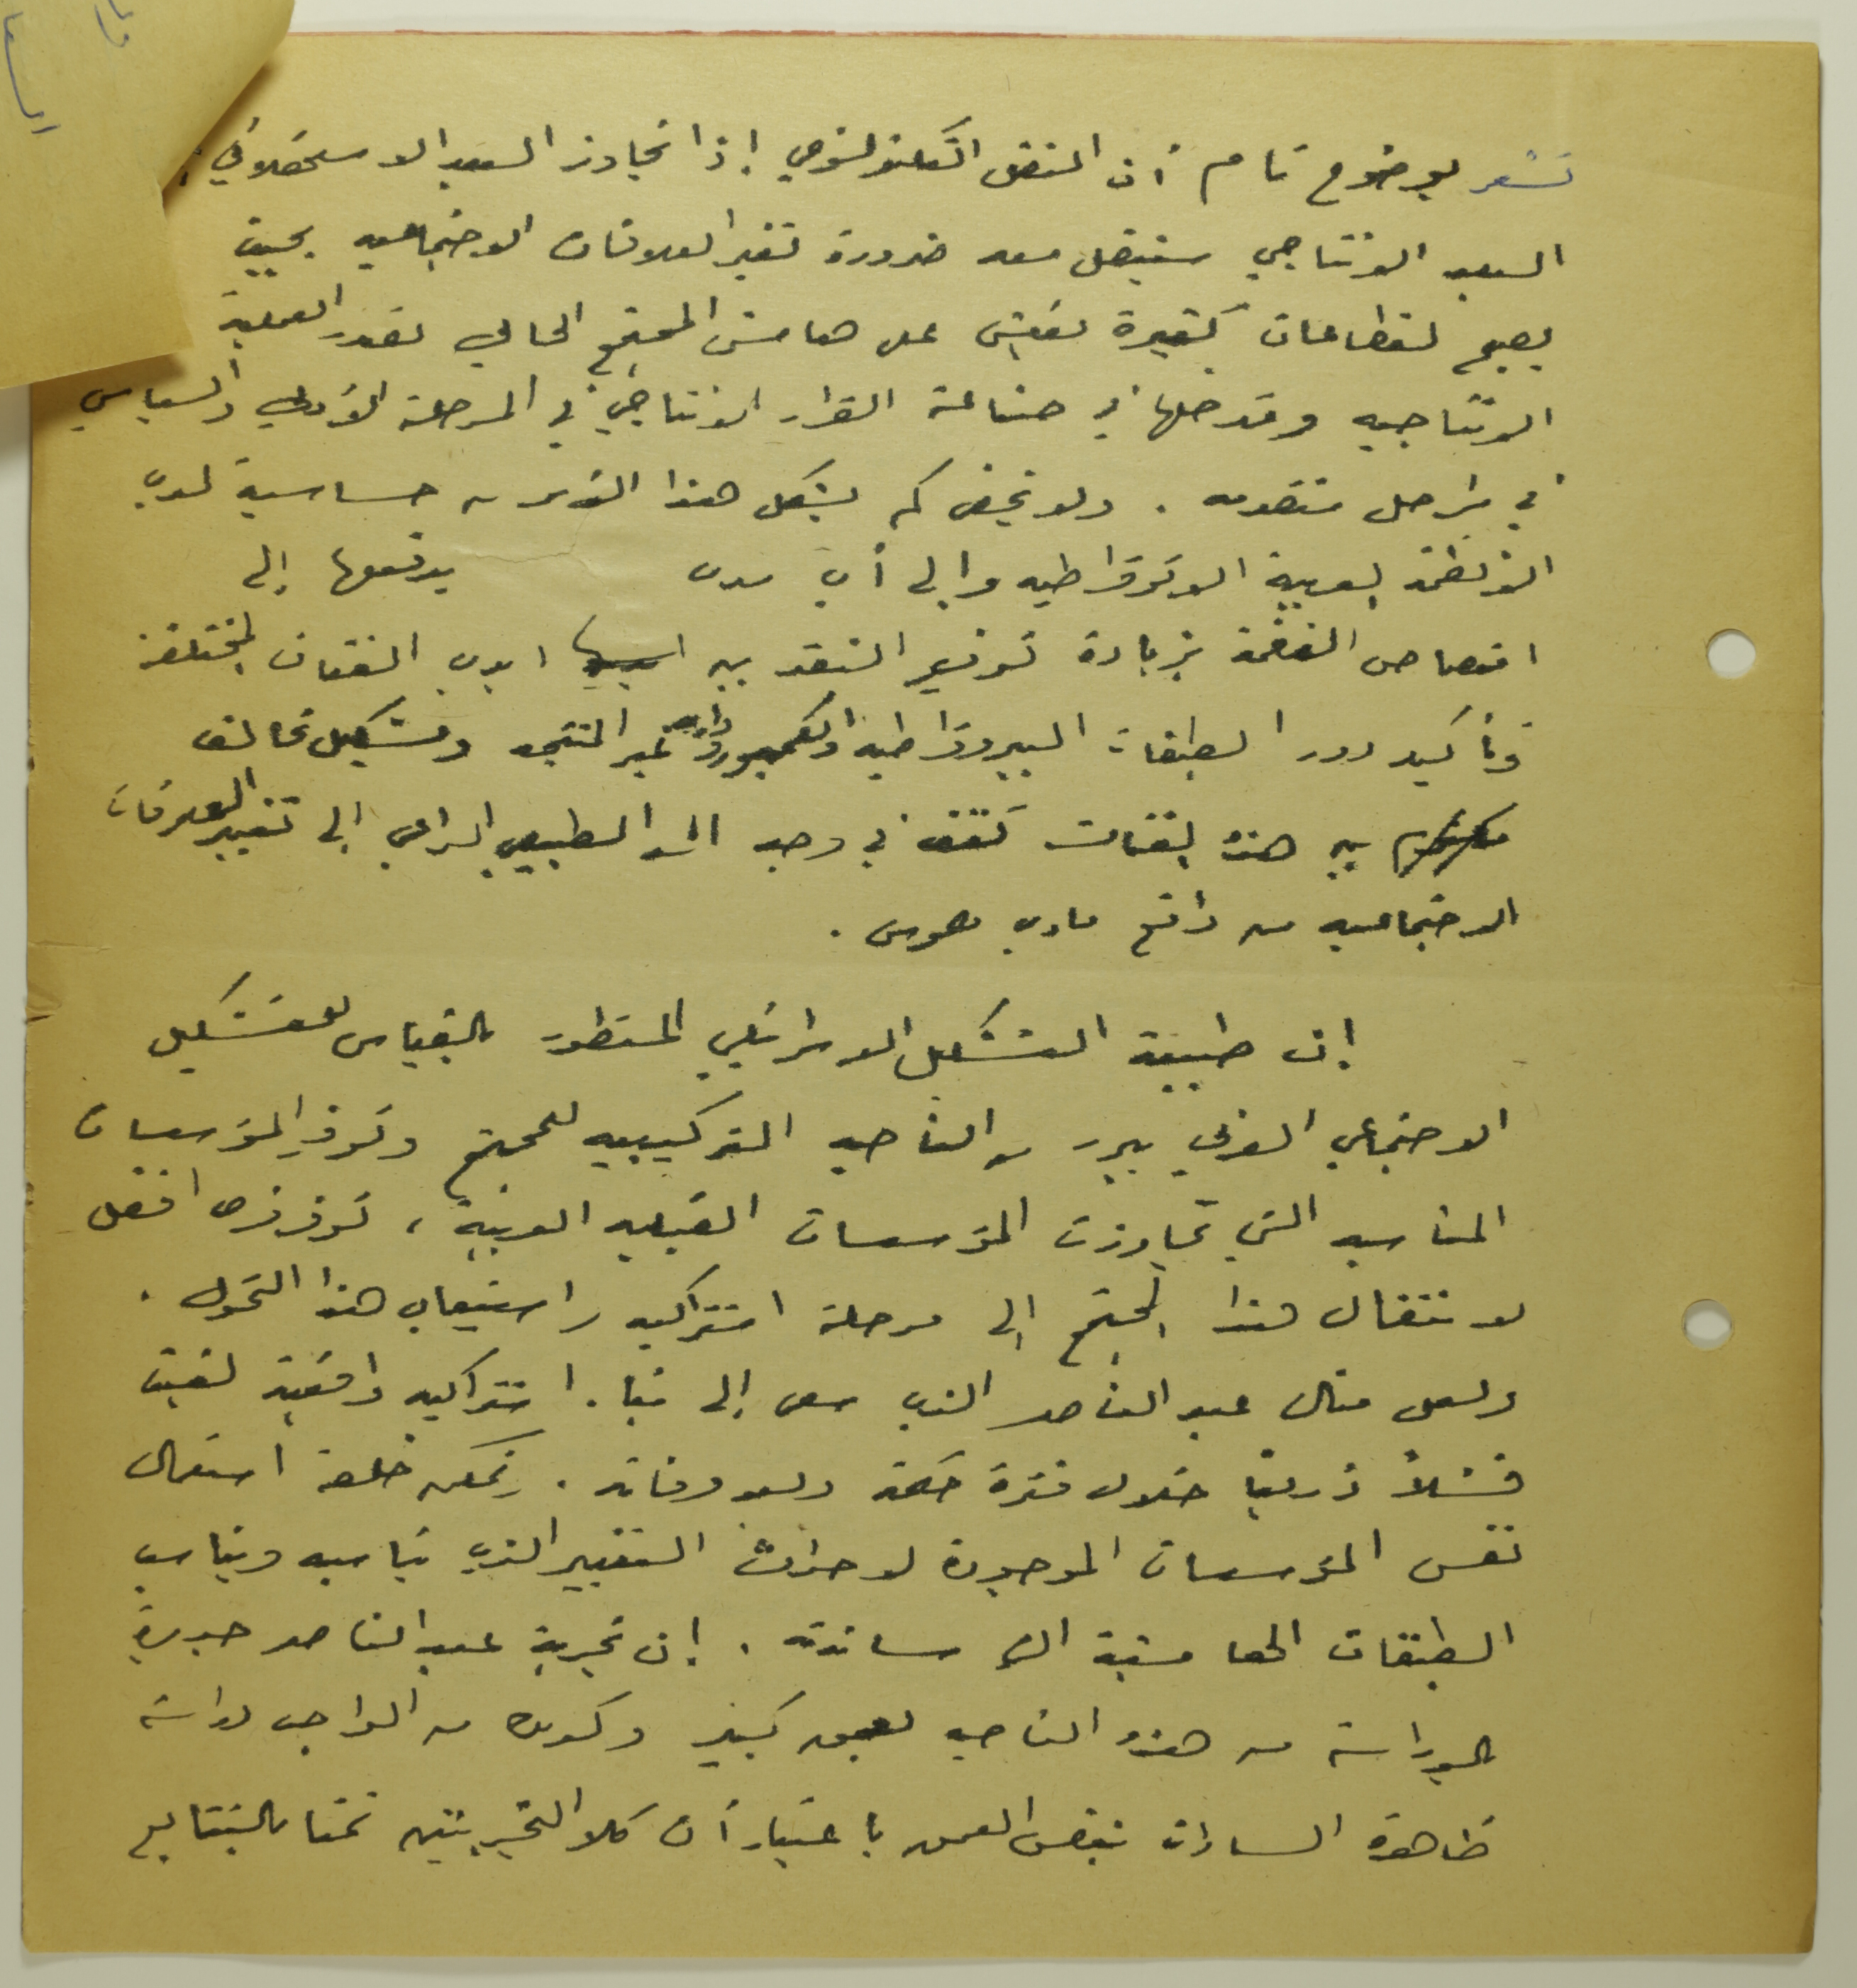 تشعر بوضوح تام أن النقل التكنولوجي إذا تجاوز البعد الاستهلاكي إلى
البعد الانتاجي سينقل معه ضرورة تغير العلاقات الاجتماعيه بحيث
يصبح لقطاعات كثيرة تعيش على هامش المجتمع الحالي العملية
الانتاجيه وتدخلها في صناعة القرار الانتاجي في المرحلة الأولى والسياسي
في مراحل متقدمه . ولا يخفى كم يشكل هذا الأمر من حساسية لدى
الأنظمة العربية الاوتوقراطيه وإلى أي مدى يدفعها إلى
امتصاص النقمة بزيادة توزيع النقد بين ايدي الفئات المختلفة
وتأكيد دور الطبقات البيروقراطيه غير المنتجه وتشكيل تحالف
بين هذه الفئات تقف في وجه الطبيعي الرامي إلى تغيير العلاقات
الاجتماعيه من واقع مادي ملموس .
إن طبيعة التشكيل الاسرائيلي المتطور بالقياس للتشكيل
الاجتماعي العربي يبرر من الناحيه التركيبيه للمجتمع وتوفر المؤسسات
المناسبه التي تجاوزت المؤسسات القبليه العربية ، توفر فرص افضل
لانتقال هذا المجتمع إلى مرحلة اشتراكيه واستيعاب هذا التحول .
ولعل مثال عبد الناصر الذي سعى إلى بناء اشتراكيه واقعية لقيت
فشلاً ذريعاً خلال فترة حكمه وبعد وفاته . استعمال
نفس المؤسسات الموجودة لاحداث التغيير الذي يناسبه ويناسب
الطبقات الهامشية التي ساندته . إن تجربة عبد الناصر جديرة
بالدراسة من هذه الناحيه بعمق كبير وكذلك من الواجب دراسة
ظاهرة السادات بنفس العمق باعتبار أن كلا التجربتين تمتا بالتتابع